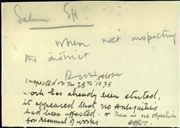 Salmu SH.
When next inspecting
the district
Inspected on the 28th 1939
work has already been started,
it appeared that no Antiquities
had been affected. There is no objection
for removal of works